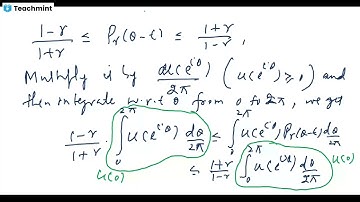 Teachmint
(1-r)/(1+r) ≤ Pr(θ-t) ≤ (1+r)/(1-r),
Multiply is by u(e^{iθ})/2π (u(e^{iθ}) ≥ 0) and
then integrate w.r.t θ from 0 to 2π, we get
(1-r)/(1+r) · ∫_0^{2π} u(e^{iθ}) dθ/2π ≤ ∫_0^{2π} u(e^{iθ}) Pr(θ-t) dθ/2π
u(0)
≤ (1+r)/(1-r) ∫_0^{2π} u(e^{iθ}) dθ/2π u(0)